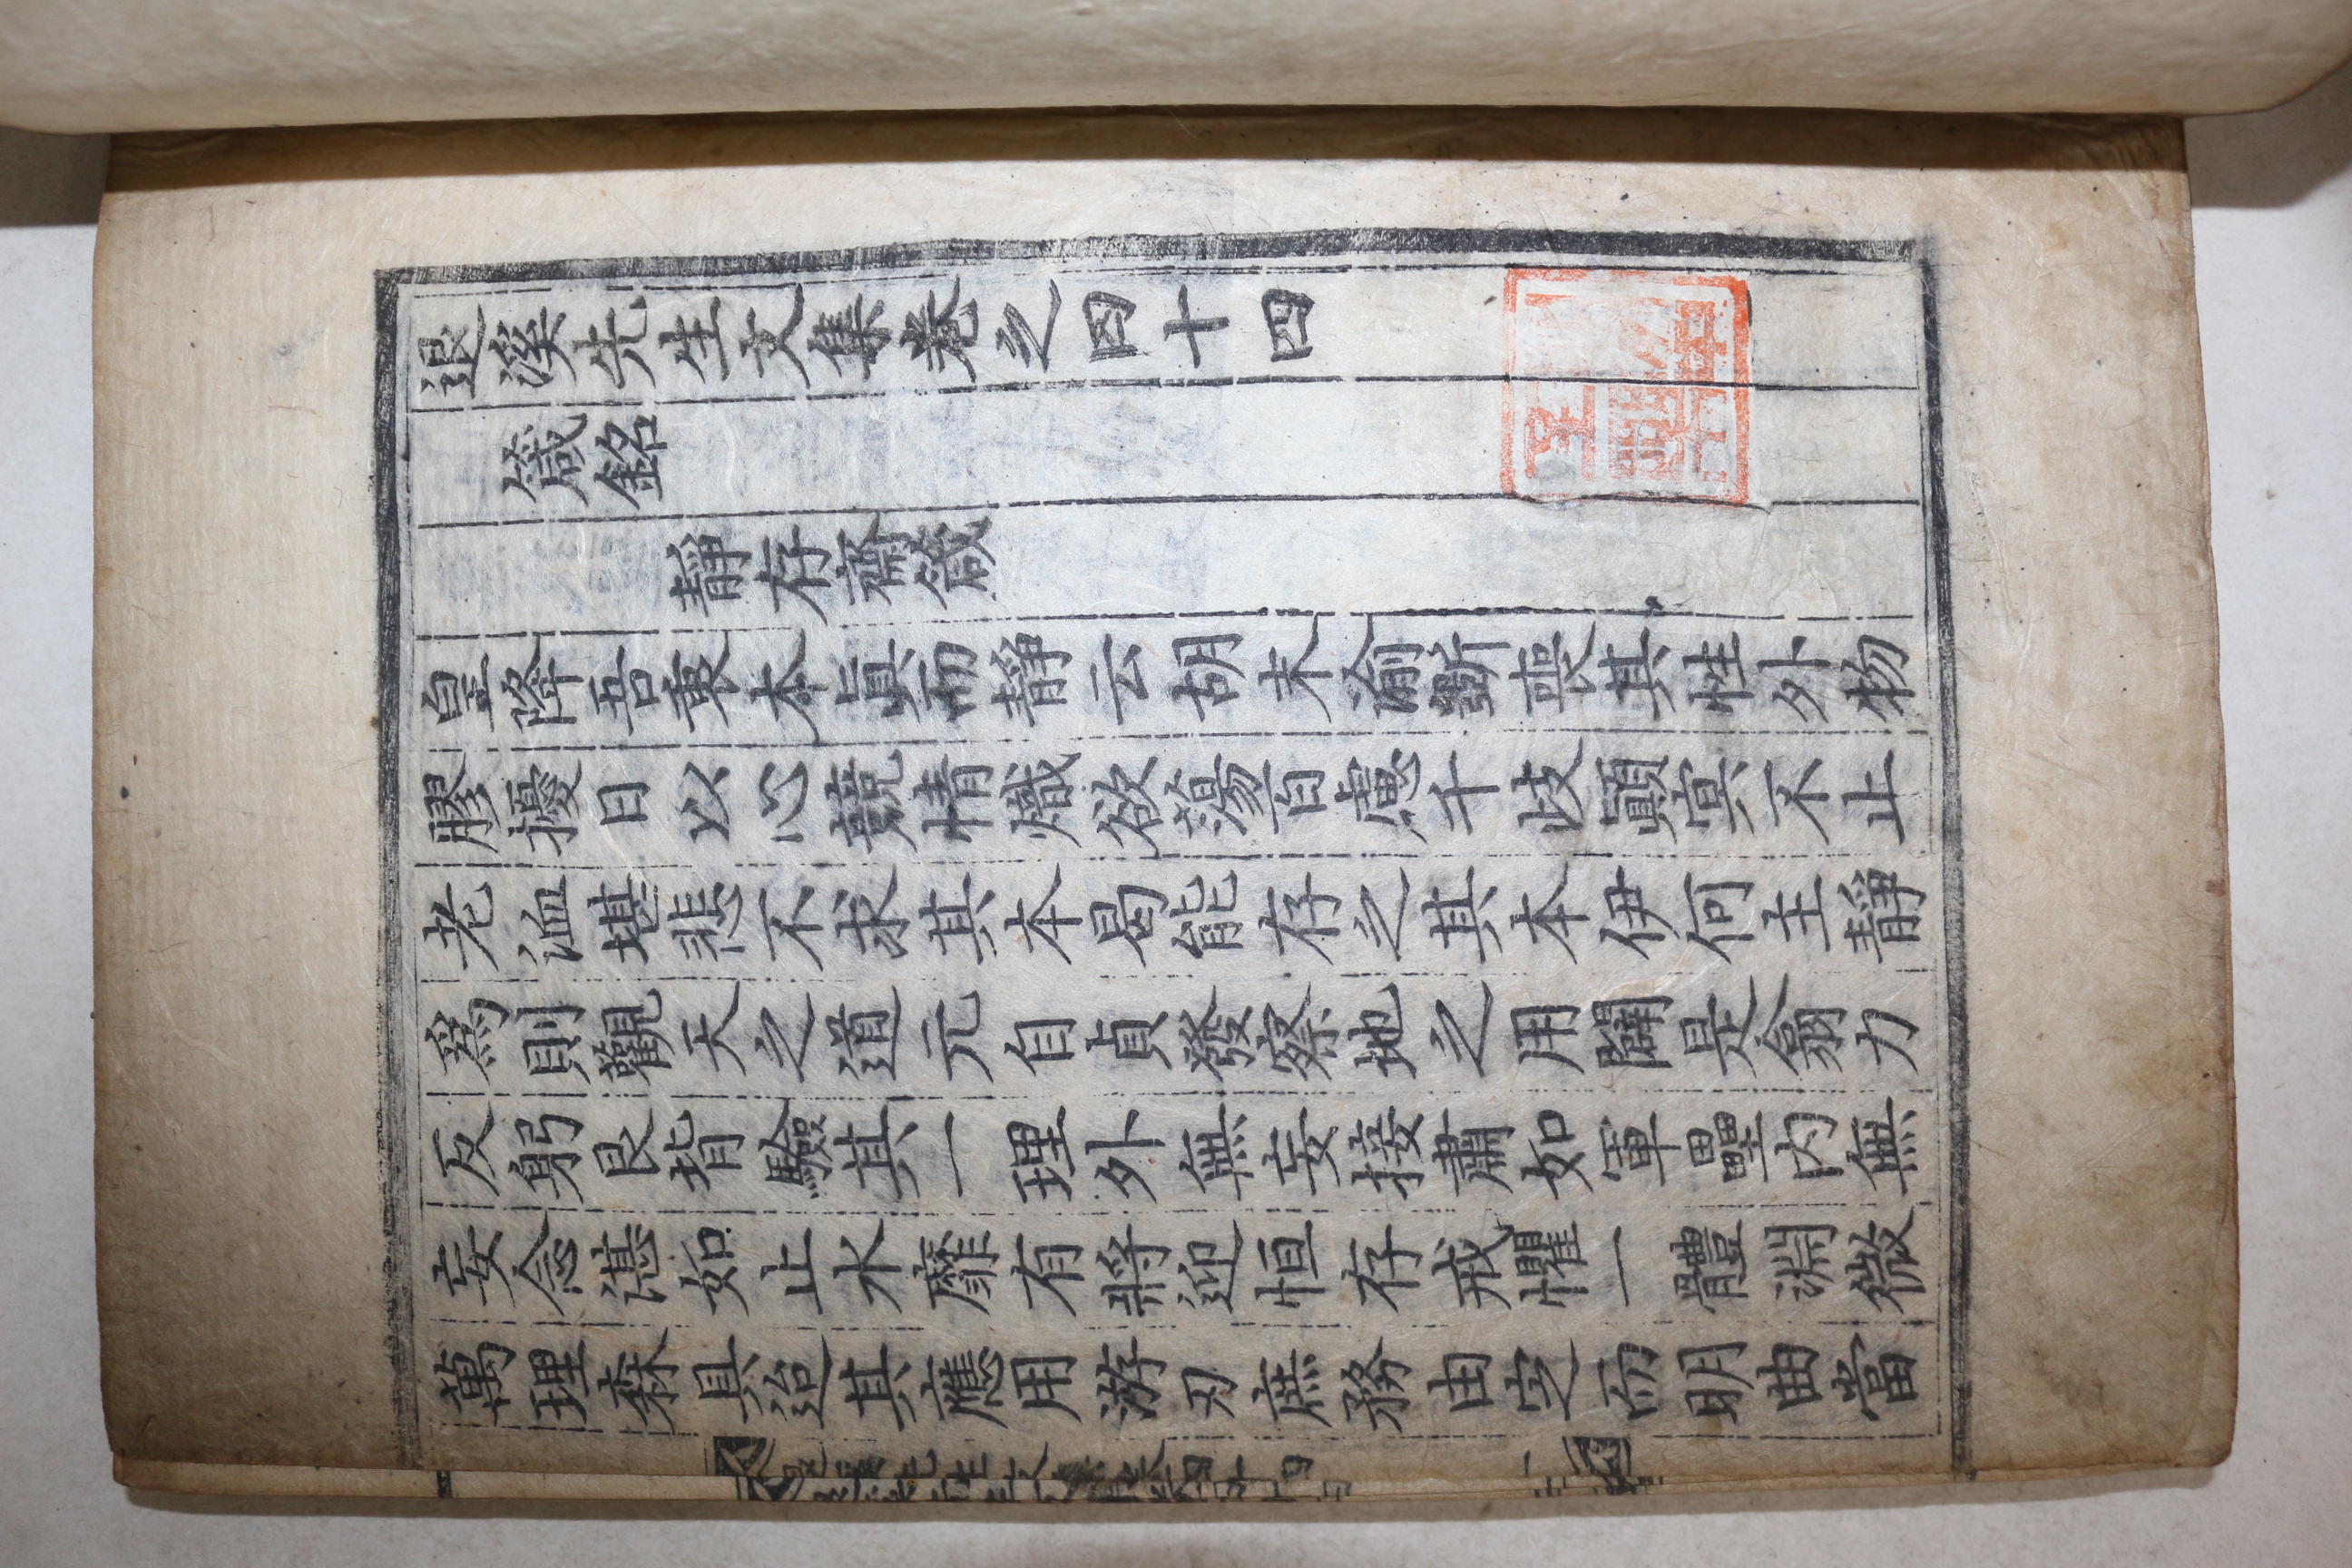 退溪先生文集卷之四十四
箴銘
靜存齋箴
皇降吾衷本眞而靜云胡末淪斲喪其性外物
膠擾日以心競情熾欲蕩百慮千岐顚冥不止
老洫堪悲不求其本曷能存之其本伊何主靜
爲則觀天之道元自貞發察地之用闢是翕力
反躬艮背驗其一理外無妄接肅如軍壘內無
妄念湛如止水靡有將迎恒存戒懼一體淵微
萬理森具迨其應用游刃庶務由定而明曲當